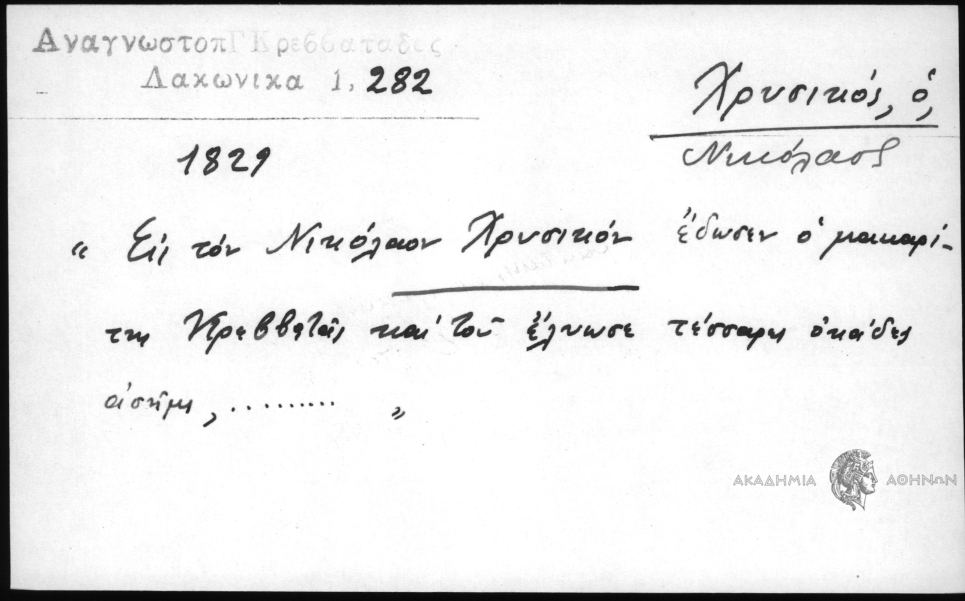 ΑναγνωστοπΓΚρεββαταδες
Λακωνικα 1, 282
Χρυσικός, ὁ,
Νικόλαος
1829
" Εἰς τόν Νικόλαον Χρυσικόν ἔδωσεν ὁ μακαρί-
της Κρεββατᾶς καί τοῦ ἔλυωσε τέσσαρες ὀκάδες
ἀσήμι, ......... "
ΑΚΑΔΗΜΙΑ ΑΘΗΝΩΝ